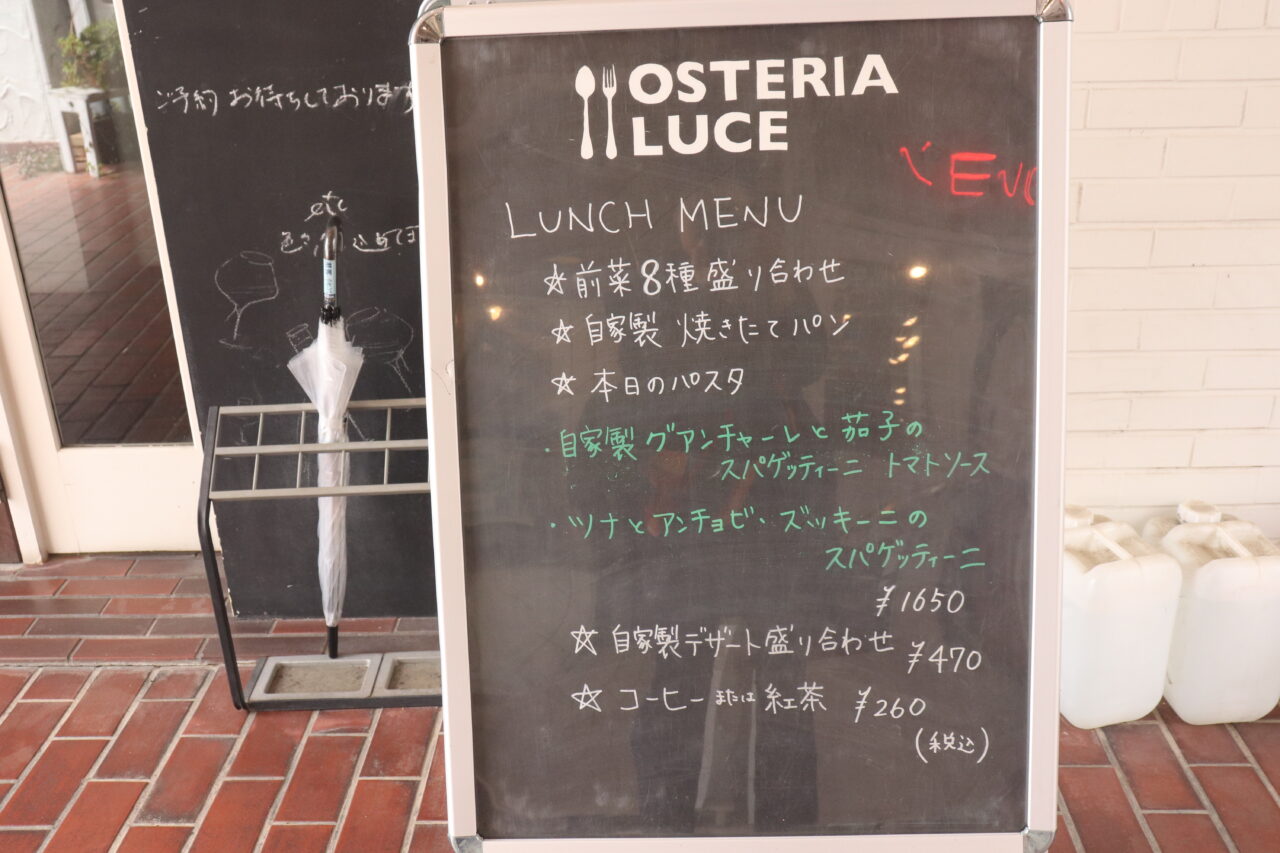 ご予約 お待ちしております
etc
OSTERIA
LUCE
LUNCH MENU
☆前菜8種盛り合わせ
☆自家製 焼きたてパン
☆本日のパスタ
・自家製グアンチャーレと茄子の
スパゲッティーニ トマトソース
・ツナとアンチョビ・ズッキーニの
スパゲッティーニ
¥1650
☆自家製デザート盛り合わせ ¥470
☆コーヒーまたは紅茶 ¥260
(税込)